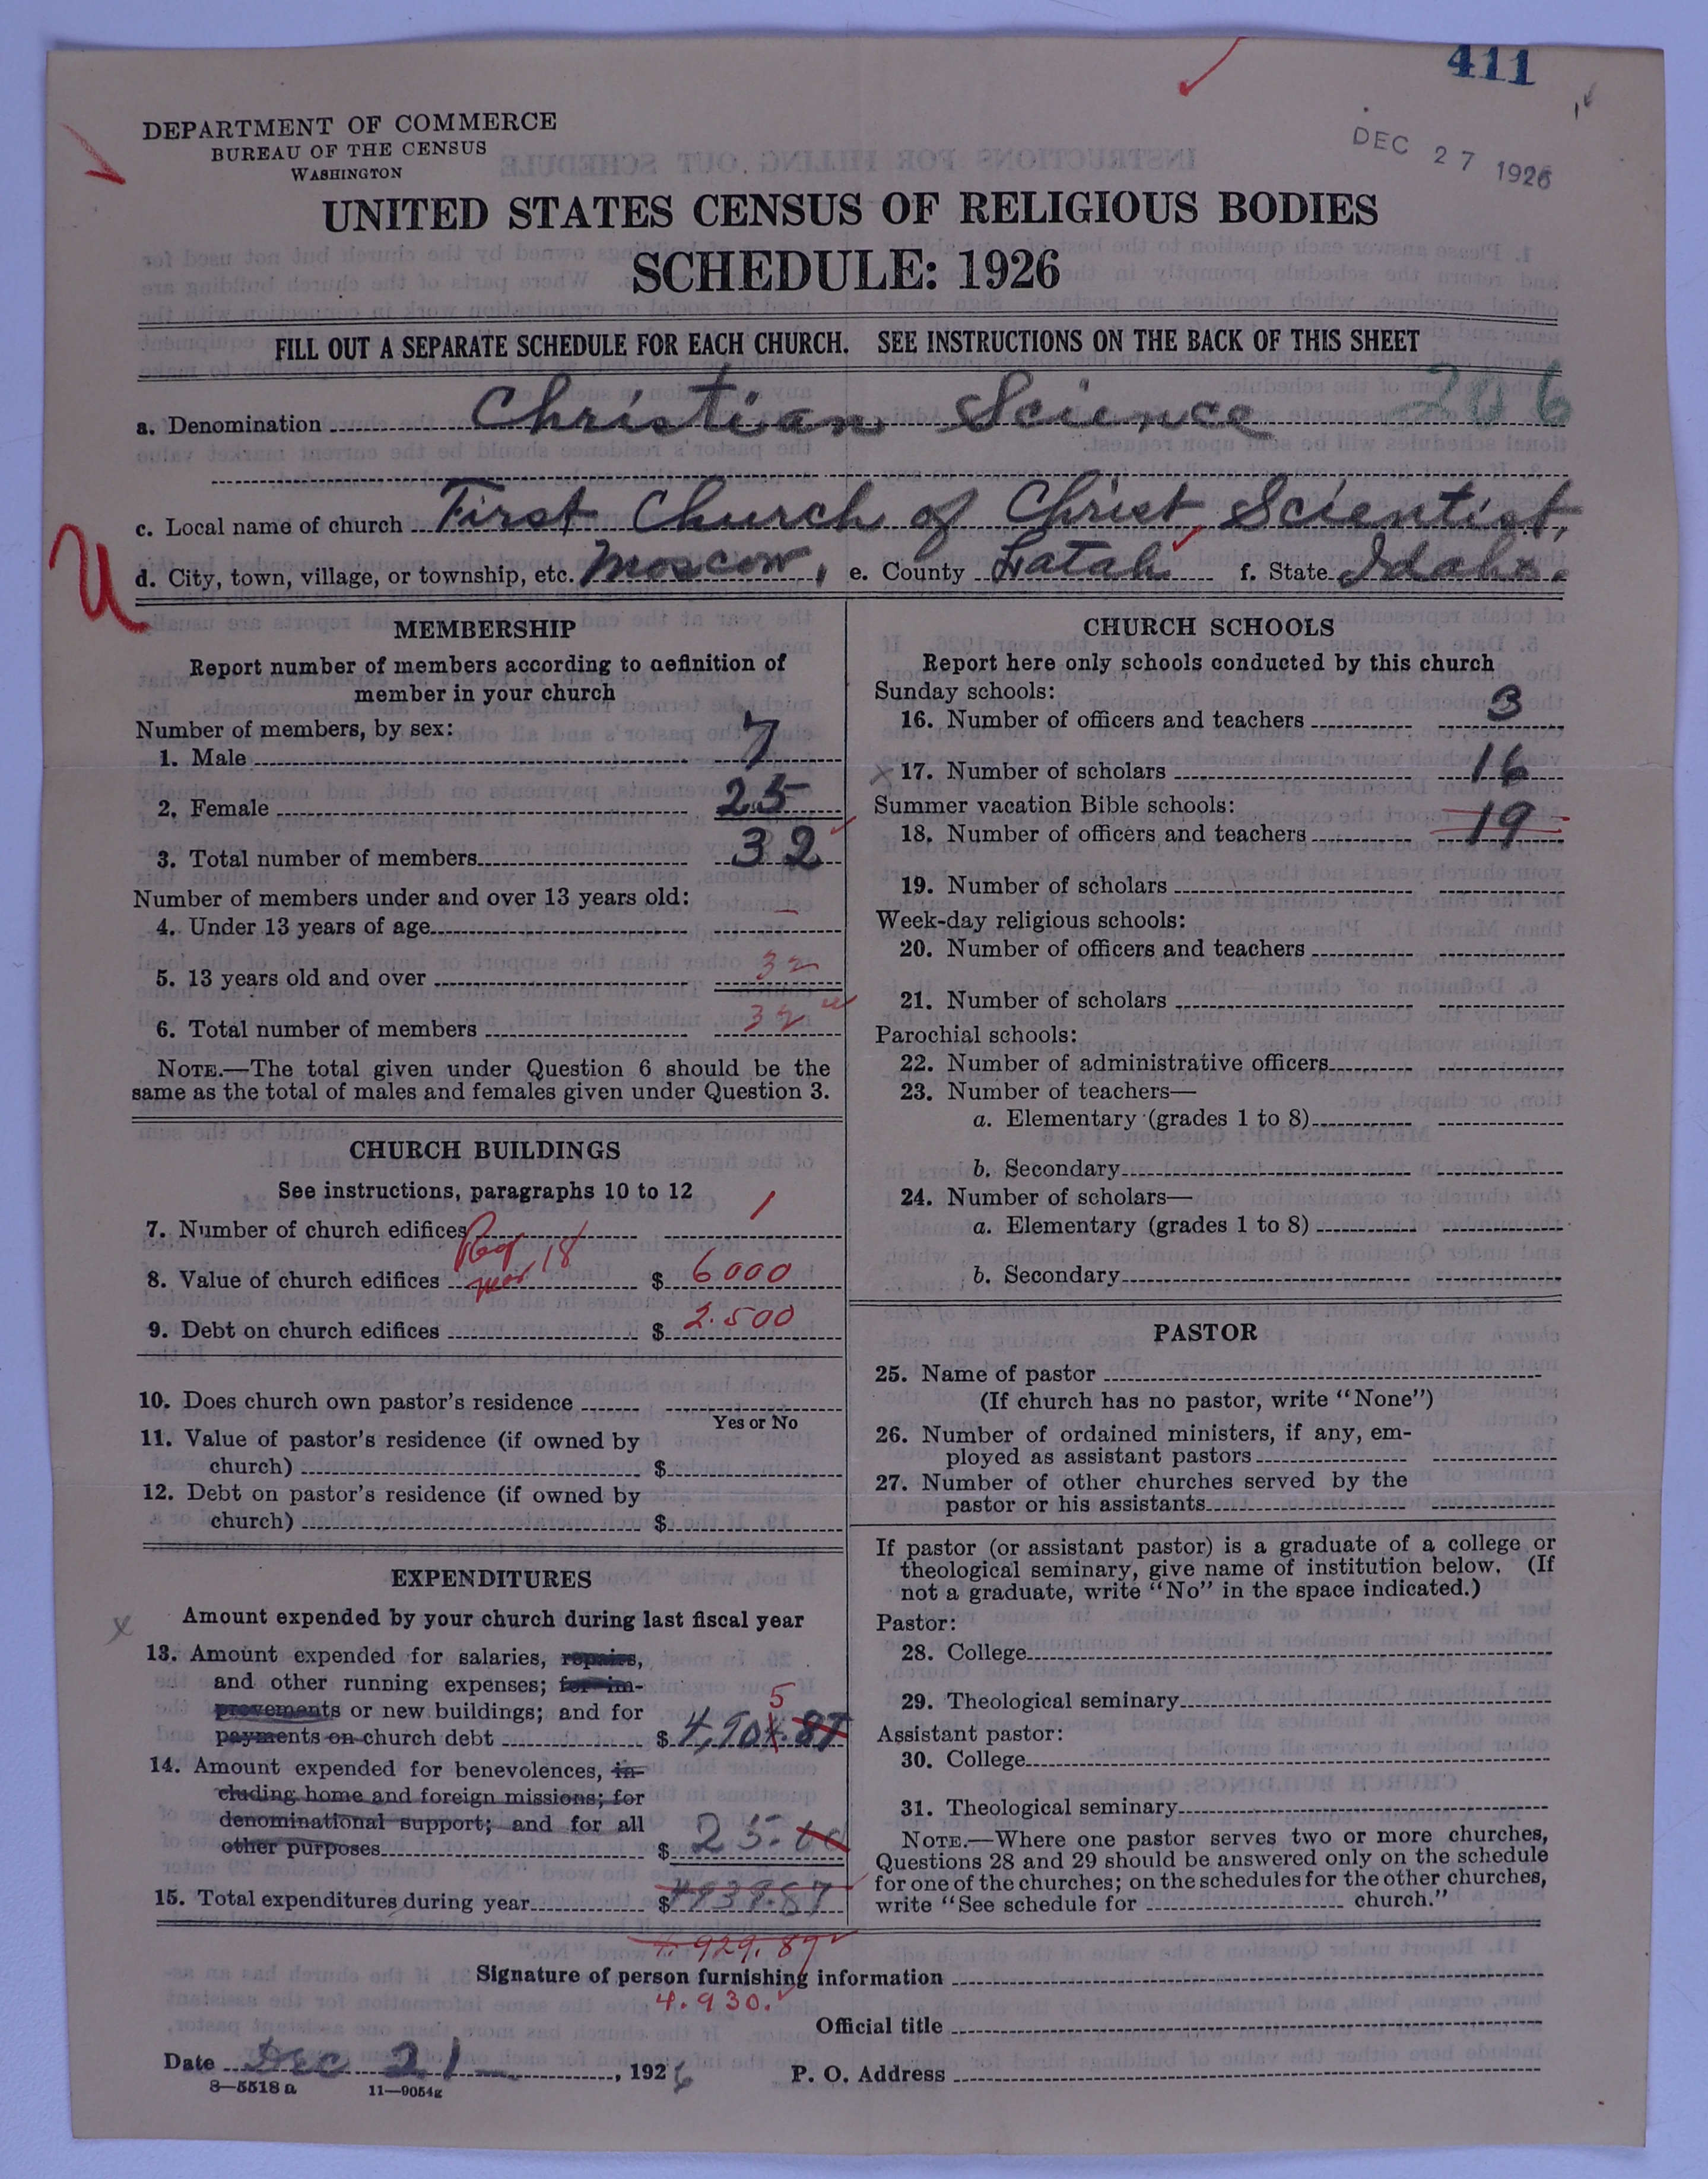 411
DEC 27 1926
DEPARTMENT OF COMMERCE
BUREAU OF THE CENSUS
WASHINGTON
UNITED STATES CENSUS OF RELIGIOUS BODIES
SCHEDULE: 1926
FILL OUT A SEPARATE SCHEDULE FOR EACH CHURCH. SEE INSTRUCTIONS ON THE BACK OF THIS SHEET
206
a. Denomination Christian Science
c. Local name of church First Church of Christ, Scientist,
U
d. City, town, village, or township, etc. Moscow, e. County Latah f. State Idaho.
MEMBERSHIP
Report number of members according to definition of
member in your church
Number of members, by sex:
1. Male 7
2. Female 25
3. Total number of members 32
Number of members under and over 13 years old:
4. Under 13 years of age —
5. 13 years old and over 32
6. Total number of members 32
NOTE.—The total given under Question 6 should be the
same as the total of males and females given under Question 3.
CHURCH BUILDINGS
See instructions, paragraphs 10 to 12
7. Number of church edifices 1
8. Value of church edifices 18 $ 6000
9. Debt on church edifices $ 2.500
10. Does church own pastor's residence
Yes or No
11. Value of pastor's residence (if owned by
church) $
12. Debt on pastor's residence (if owned by
church) $
EXPENDITURES
x Amount expended by your church during last fiscal year
13. Amount expended for salaries, repairs,
and other running expenses; for im-
provements or new buildings; and for
5
payments on church debt $ 4,904.87
14. Amount expended for benevolences, in-
cluding home and foreign missions; for
denominational support; and for all
other purposes $ 25.00
15. Total expenditures during year $ 4939.87
4.929.87
4.930.
CHURCH SCHOOLS
Report here only schools conducted by this church
Sunday schools:
16. Number of officers and teachers 3
x 17. Number of scholars 16
Summer vacation Bible schools:
18. Number of officers and teachers 19
19. Number of scholars
Week-day religious schools:
20. Number of officers and teachers
21. Number of scholars
Parochial schools:
22. Number of administrative officers
23. Number of teachers—
a. Elementary (grades 1 to 8)
b. Secondary
24. Number of scholars—
a. Elementary (grades 1 to 8)
b. Secondary
PASTOR
25. Name of pastor
(If church has no pastor, write "None")
26. Number of ordained ministers, if any, em-
ployed as assistant pastors
27. Number of other churches served by the
pastor or his assistants
If pastor (or assistant pastor) is a graduate of a college or
theological seminary, give name of institution below. (If
not a graduate, write "No" in the space indicated.)
Pastor:
28. College
29. Theological seminary
Assistant pastor:
30. College
31. Theological seminary
NOTE.—Where one pastor serves two or more churches,
Questions 28 and 29 should be answered only on the schedule
for one of the churches; on the schedules for the other churches,
write "See schedule for church."
Signature of person furnishing information
Official title
Date Dec 21—, 1926
P. O. Address
8—5518 a 11—9054g